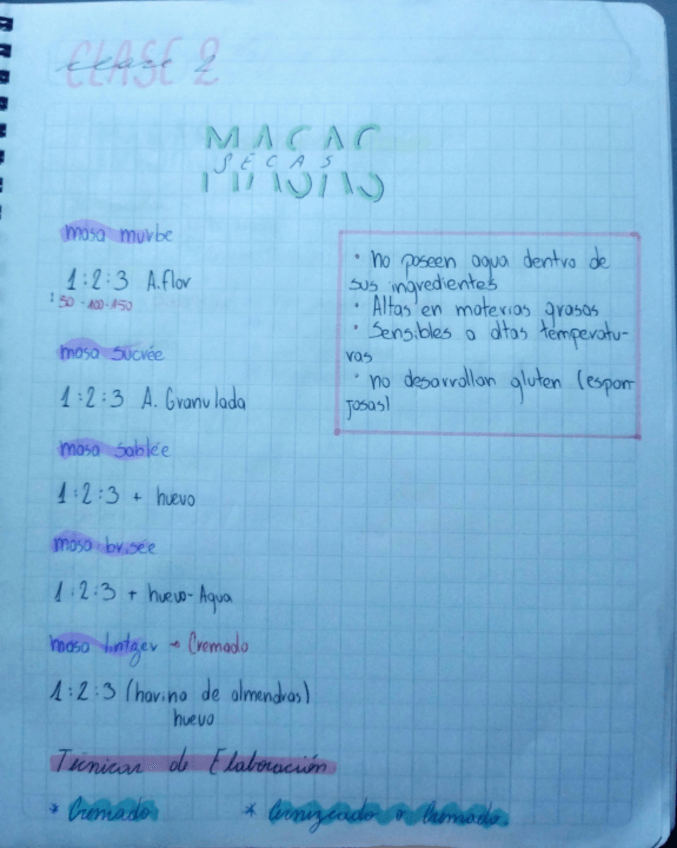 CLASE 2
MASAS
SECAS
masa murbe
1:2:3 A.flor
: 50 - 100 - 150
masa sucrée
1:2:3 A. Granulada
masa sablée
1:2:3 + huevo
masa brisée
1:2:3 + huevo-Agua
masa lintzer → Cremado
1:2:3 (harina de almendras)
huevo
• no poseen agua dentro de
sus ingredientes
• Altas en materias grasas
• Sensibles a altas temperatu-
ras
• no desarrollan gluten (espon
josas)
Técnicas de Elaboración
* Cremado * Cernizcado o Cremado.